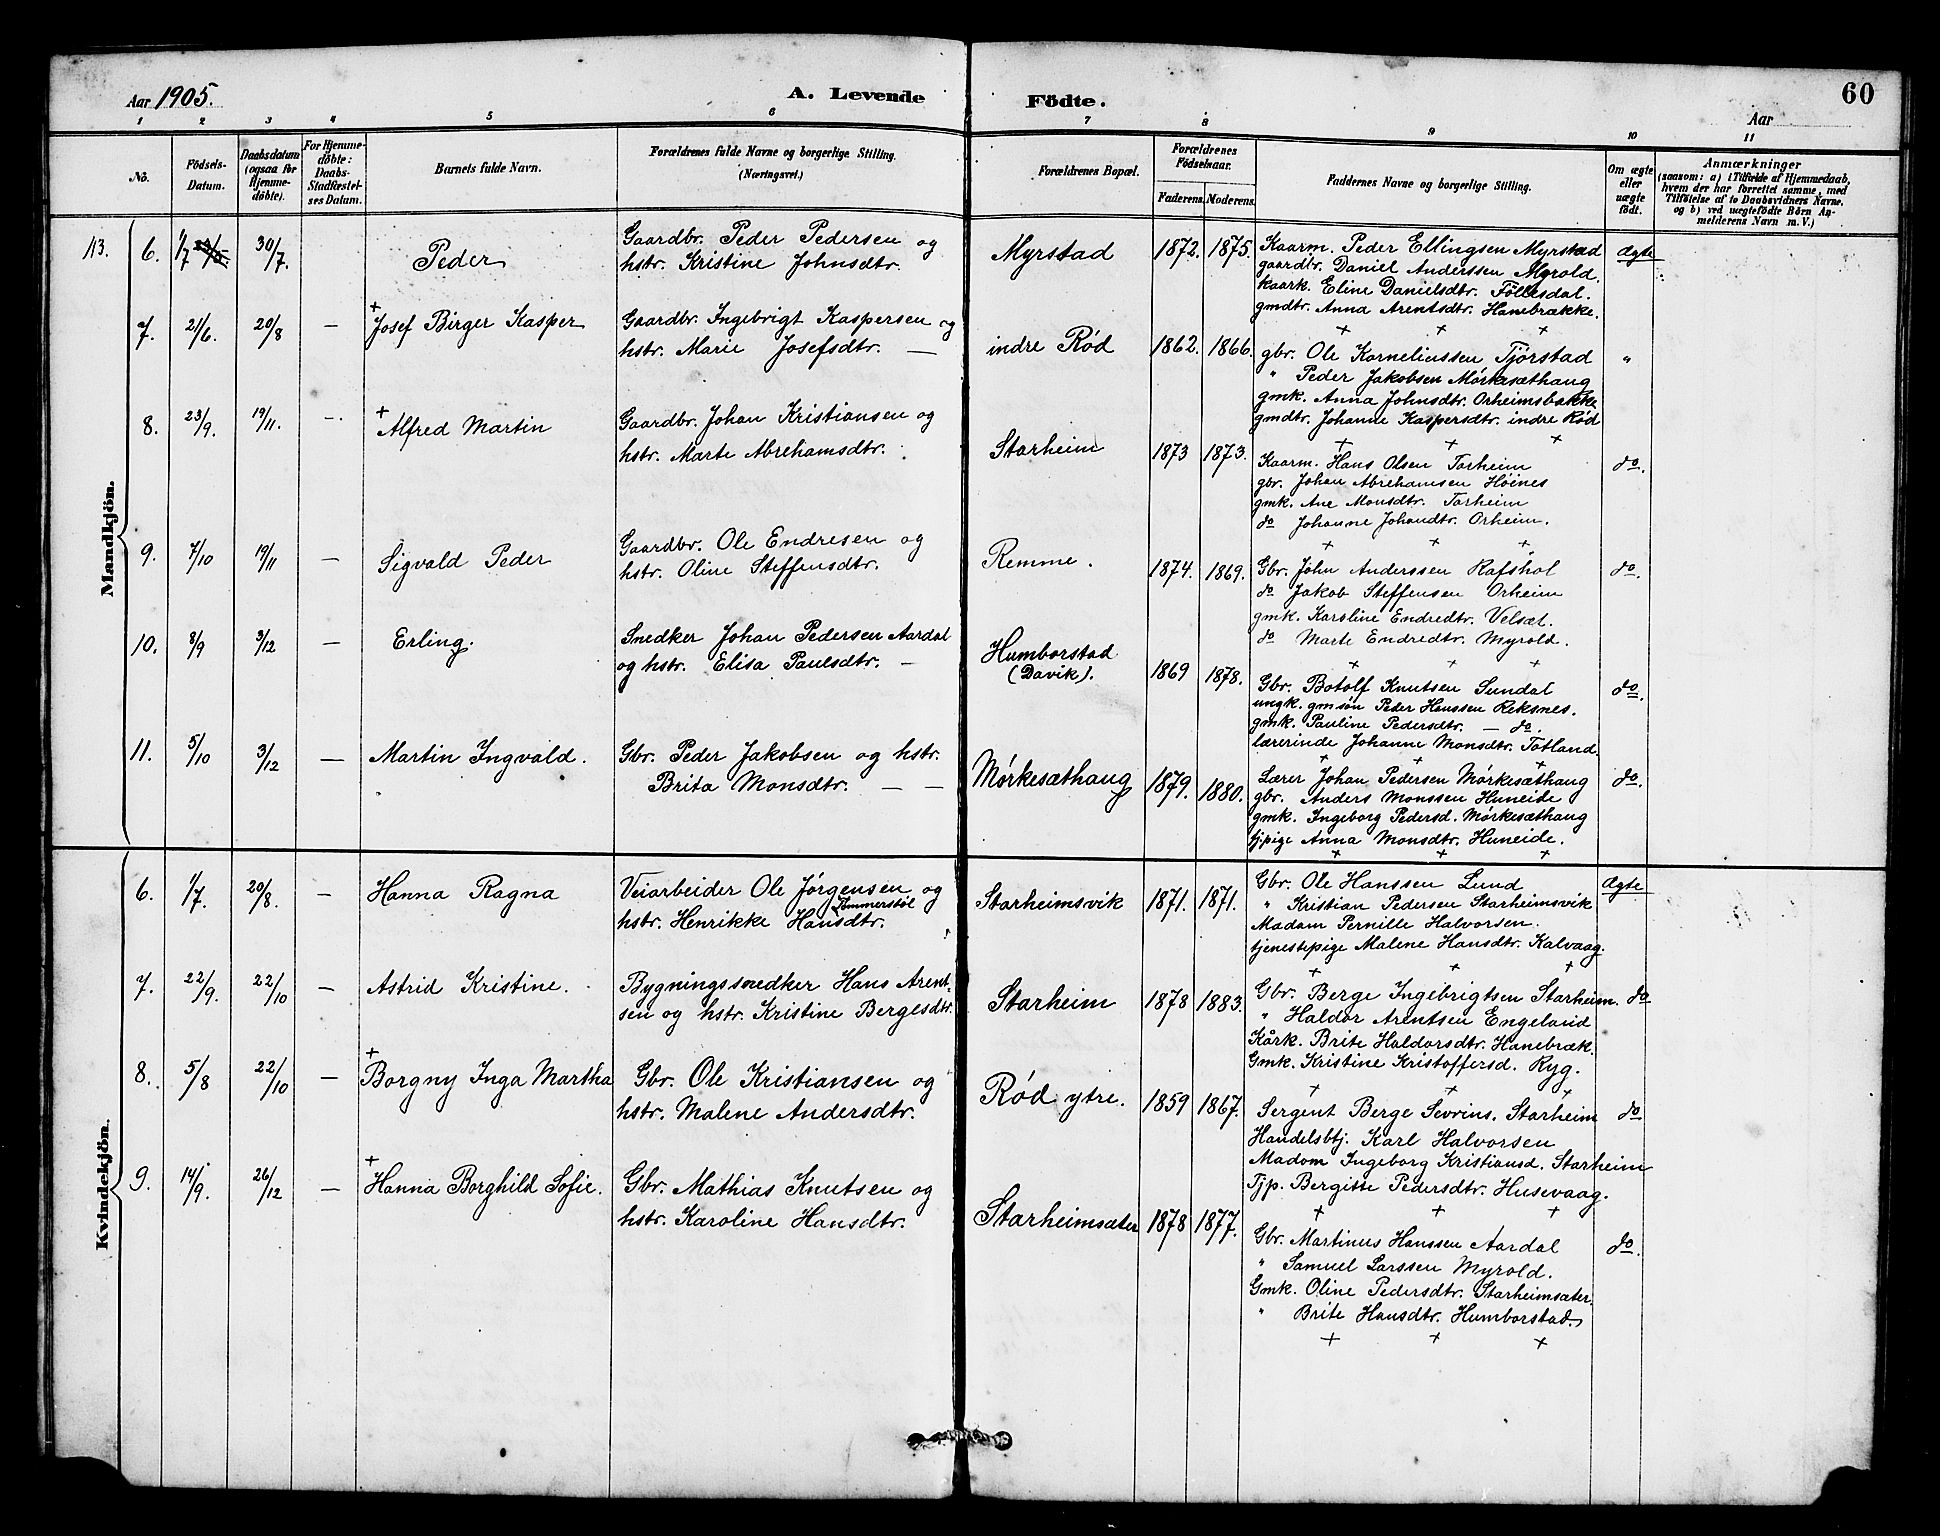 Aar 1905.
A. Levende Födte.
Aar
60
1 2 3 4 5 6 7 8 9 10 11
No.
Födsels-Datum.
Daabsdatum (ogsaa for Hjemme-döbte).
For Hjemme-döbte: Daabs-Stadfæstel-ses Datum.
Barnets fulde Navn.
Forældrenes fulde Navne og borgerlige Stilling. (Næringsvei.)
Forældrenes Bopæl.
Forældrenes Födselsaar.
Faderens. Moderens.
Faddernes Navne og borgerlige Stilling.
Om ægte eller uægte födt.
Anmærkninger
(saasom: a) i Tilfælde af Hjemmedaab, hvem der har forrettet samme, med Tilföielse af to Daabsvidners Navne. og b) ved uægtefödte Börn An-melderens Navn m. V.)
Mandkjön.
113.
6. 1/7 30/7. Peder
Gaardbr. Peder Pedersen og
hstr. Kristine Johnsdtr.
Myrstad 1872. 1875.
Kaarm. Peder Ellingsen Myrstad
gaardbr. Daniel Anderssen Myrold.
kaark. Eline Danielsdtr. Föllesdal.
gmdtr. Anna Arentsdtr. Hanebrække.
+ + +
Ægte
7. 21/6. 20/8 — + Josef Birger Kasper
Gaardbr. Ingebrigt Kaspersen og
hstr. Marie Josefsdtr. —
indre Rød 1862. 1866.
gbr. Ole Korneliussen Tjörstad
" Peder Jakobsen Mørkesæthaug
gmk. Anna Johnsdtr. Orheimsbakke
gmdtr. Johanne Kaspersdtr. indre Rød
+ + +
"
8. 23/9. 19/11. — + Alfred Martin
Gaardbr. Johan Kristiansen og
hstr. Marte Abrehamsdtr.
Starheim 1873 1873.
Kaarm. Hans Olsen Torheim
gbr. Johan Abrehamsen Høines
gmk. Ane Monsdtr. Torheim
do Johanne Johandtr. Orheim.
+ + +
do.
9. 7/10 19/11 — Sigvald Peder
Gaardbr. Ole Endresen og
hstr. Oline Steffensdtr.
Remme. 1874. 1869.
Gbr. John Anderssen Rafshol
do Jakob Steffensen Orheim
gmk. Karoline Endredtr. Velsæt.
do Marte Endredtr. Myrold.
+ + +
do.
10. 8/9 3/12 — Erling.
Snedker Johan Pedersen Aardal
og hstr. Elisa Paulsdtr. —
Humborstad
(Davik). 1869 1878.
Gbr. Botolf Knutsen Sundal
ungk. gmsön Peder Hanssen Reksnes.
gmk. Pauline Pedersdtr. — do.
lærerinde Johanne Monsdtr. Totland.
+ + +
do.
11. 5/10 3/12 — Martin Ingvald.
Gbr. Peder Jakobsen og hstr.
Brita Monsdtr. — —
Mørkesæthaug 1879. 1880.
Lærer Johan Pedersen Mørkesæthaug
gbr. Anders Monssen Huneide
gmk. Ingeborg Pedersd. Mørkesæthaug
tjpige Anna Monsdtr. Huneide.
+ + +
do.
Kvindekjön.
6. 1/7. 20/8. — Hanna Ragna
Veiarbeider Ole Jørgensen og
Tømmerstöl
hstr. Henrikke Hansdtr.
Starheimsvik 1871. 1871.
Gbr. Ole Hanssen Lund
" Kristian Pedersen Starheimsvik
Madam Pernille Halvorsen.
tjenestepige Malene Hansdtr. Kalvaag.
+ + +
Ægte
7. 22/9. 22/10 — Astrid Kristine.
Bygningssnedker Hans Arent-
sen og hstr. Kristine Bergesdtr.
Starheim 1878 1883.
Gbr. Berge Ingebrigtsen Starheim.
" Haldor Arentsen Engeland
Kårk. Brite Haldorsdtr. Hanebræk.
Gmk. Kristine Kristoffersd. Ryg.
+ + +
do
8. 5/8 22/10 — + Borgny Inga Martha
Gbr. Ole Kristiansen og
hstr. Malene Andersdtr.
Rød ytre. 1859 1867.
Sergent Berge Sevrins. Starheim
Handelsbtj. Karl Halvorsen
Madam Ingeborg Kristiansd. Starheim
Tjp. Bergitte Pedersdtr. Husevaag.
+ + +
do
9. 14/9. 26/12 — + Hanna Borghild Sofie.
Gbr. Mathias Knutsen og
hstr. Karoline Hansdtr.
Starheimsæter 1878 1877.
Gbr. Martinus Hanssen Aardal
" Samuel Larssen Myrold.
Gmk. Oline Pedersdtr. Starheimsæter.
" Brite Hansdtr. Humborstad.
+ + +
do.